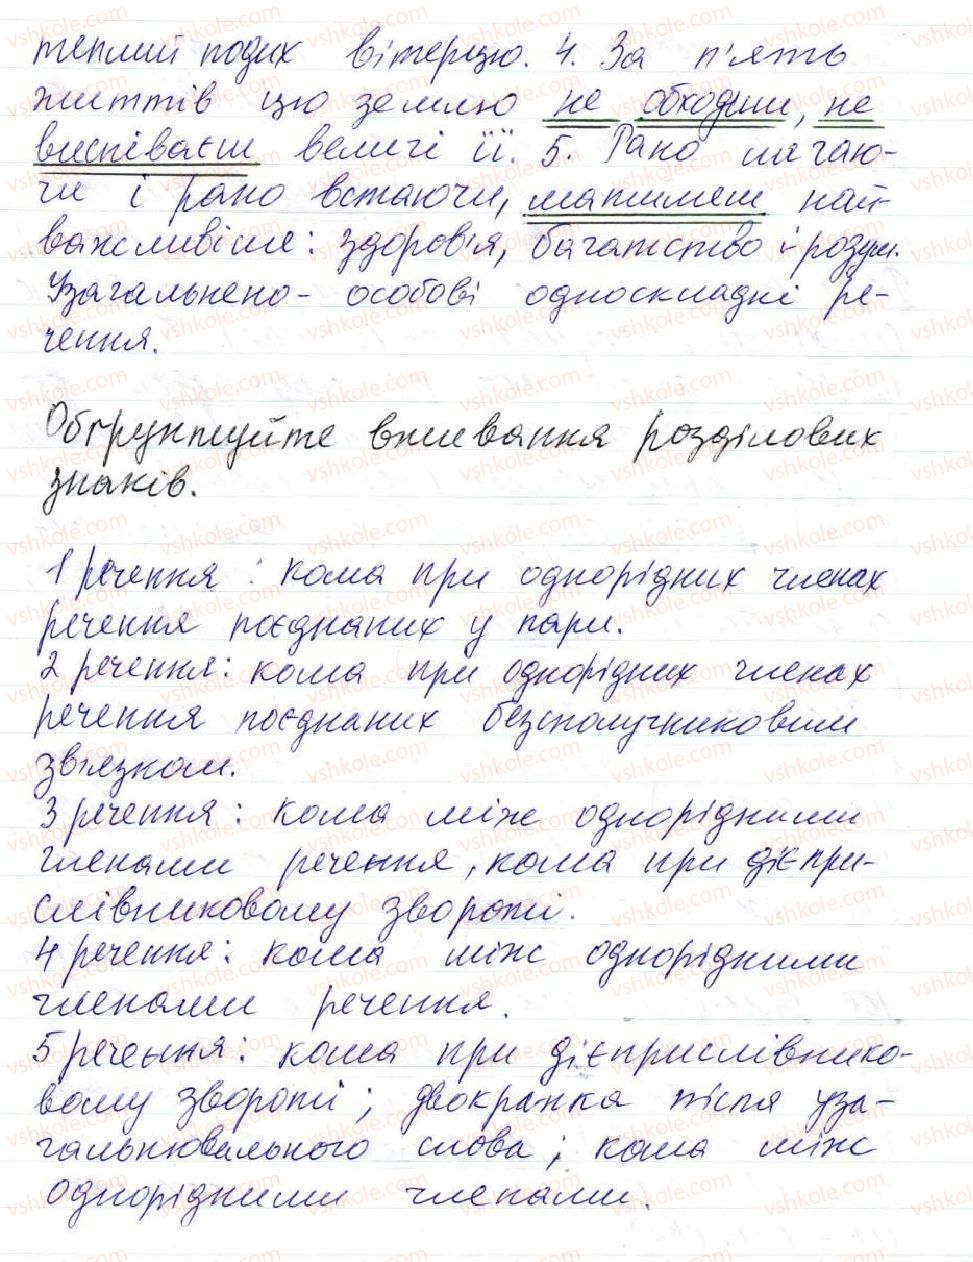 теплий подих вітерцю. 4. За п'ять
життів цю землю не обходиш, не
виспіваєш величі її. 5. Рано лягаю-
чи і рано встаючи, матимеш най-
важливіше: здоров'я, багатство і розум.
Узагальнено-особові односкладні ре-
чення.
Обґрунтуйте вживання розділових
знаків.
1 речення: кома при однорідних членах
речення поєднаних у пари.
2 речення: кома при однорідних членах
речення поєднаних безсполучниковим
зв'язком.
3 речення: кома між однорідними
членами речення, кома при дієпри-
слівниковому звороті.
4 речення: кома між однорідними
членами речення.
5 речення: кома при дієприслівнико-
вому звороті; двокрапка після уза-
гальнювального слова; кома між
однорідними членами.